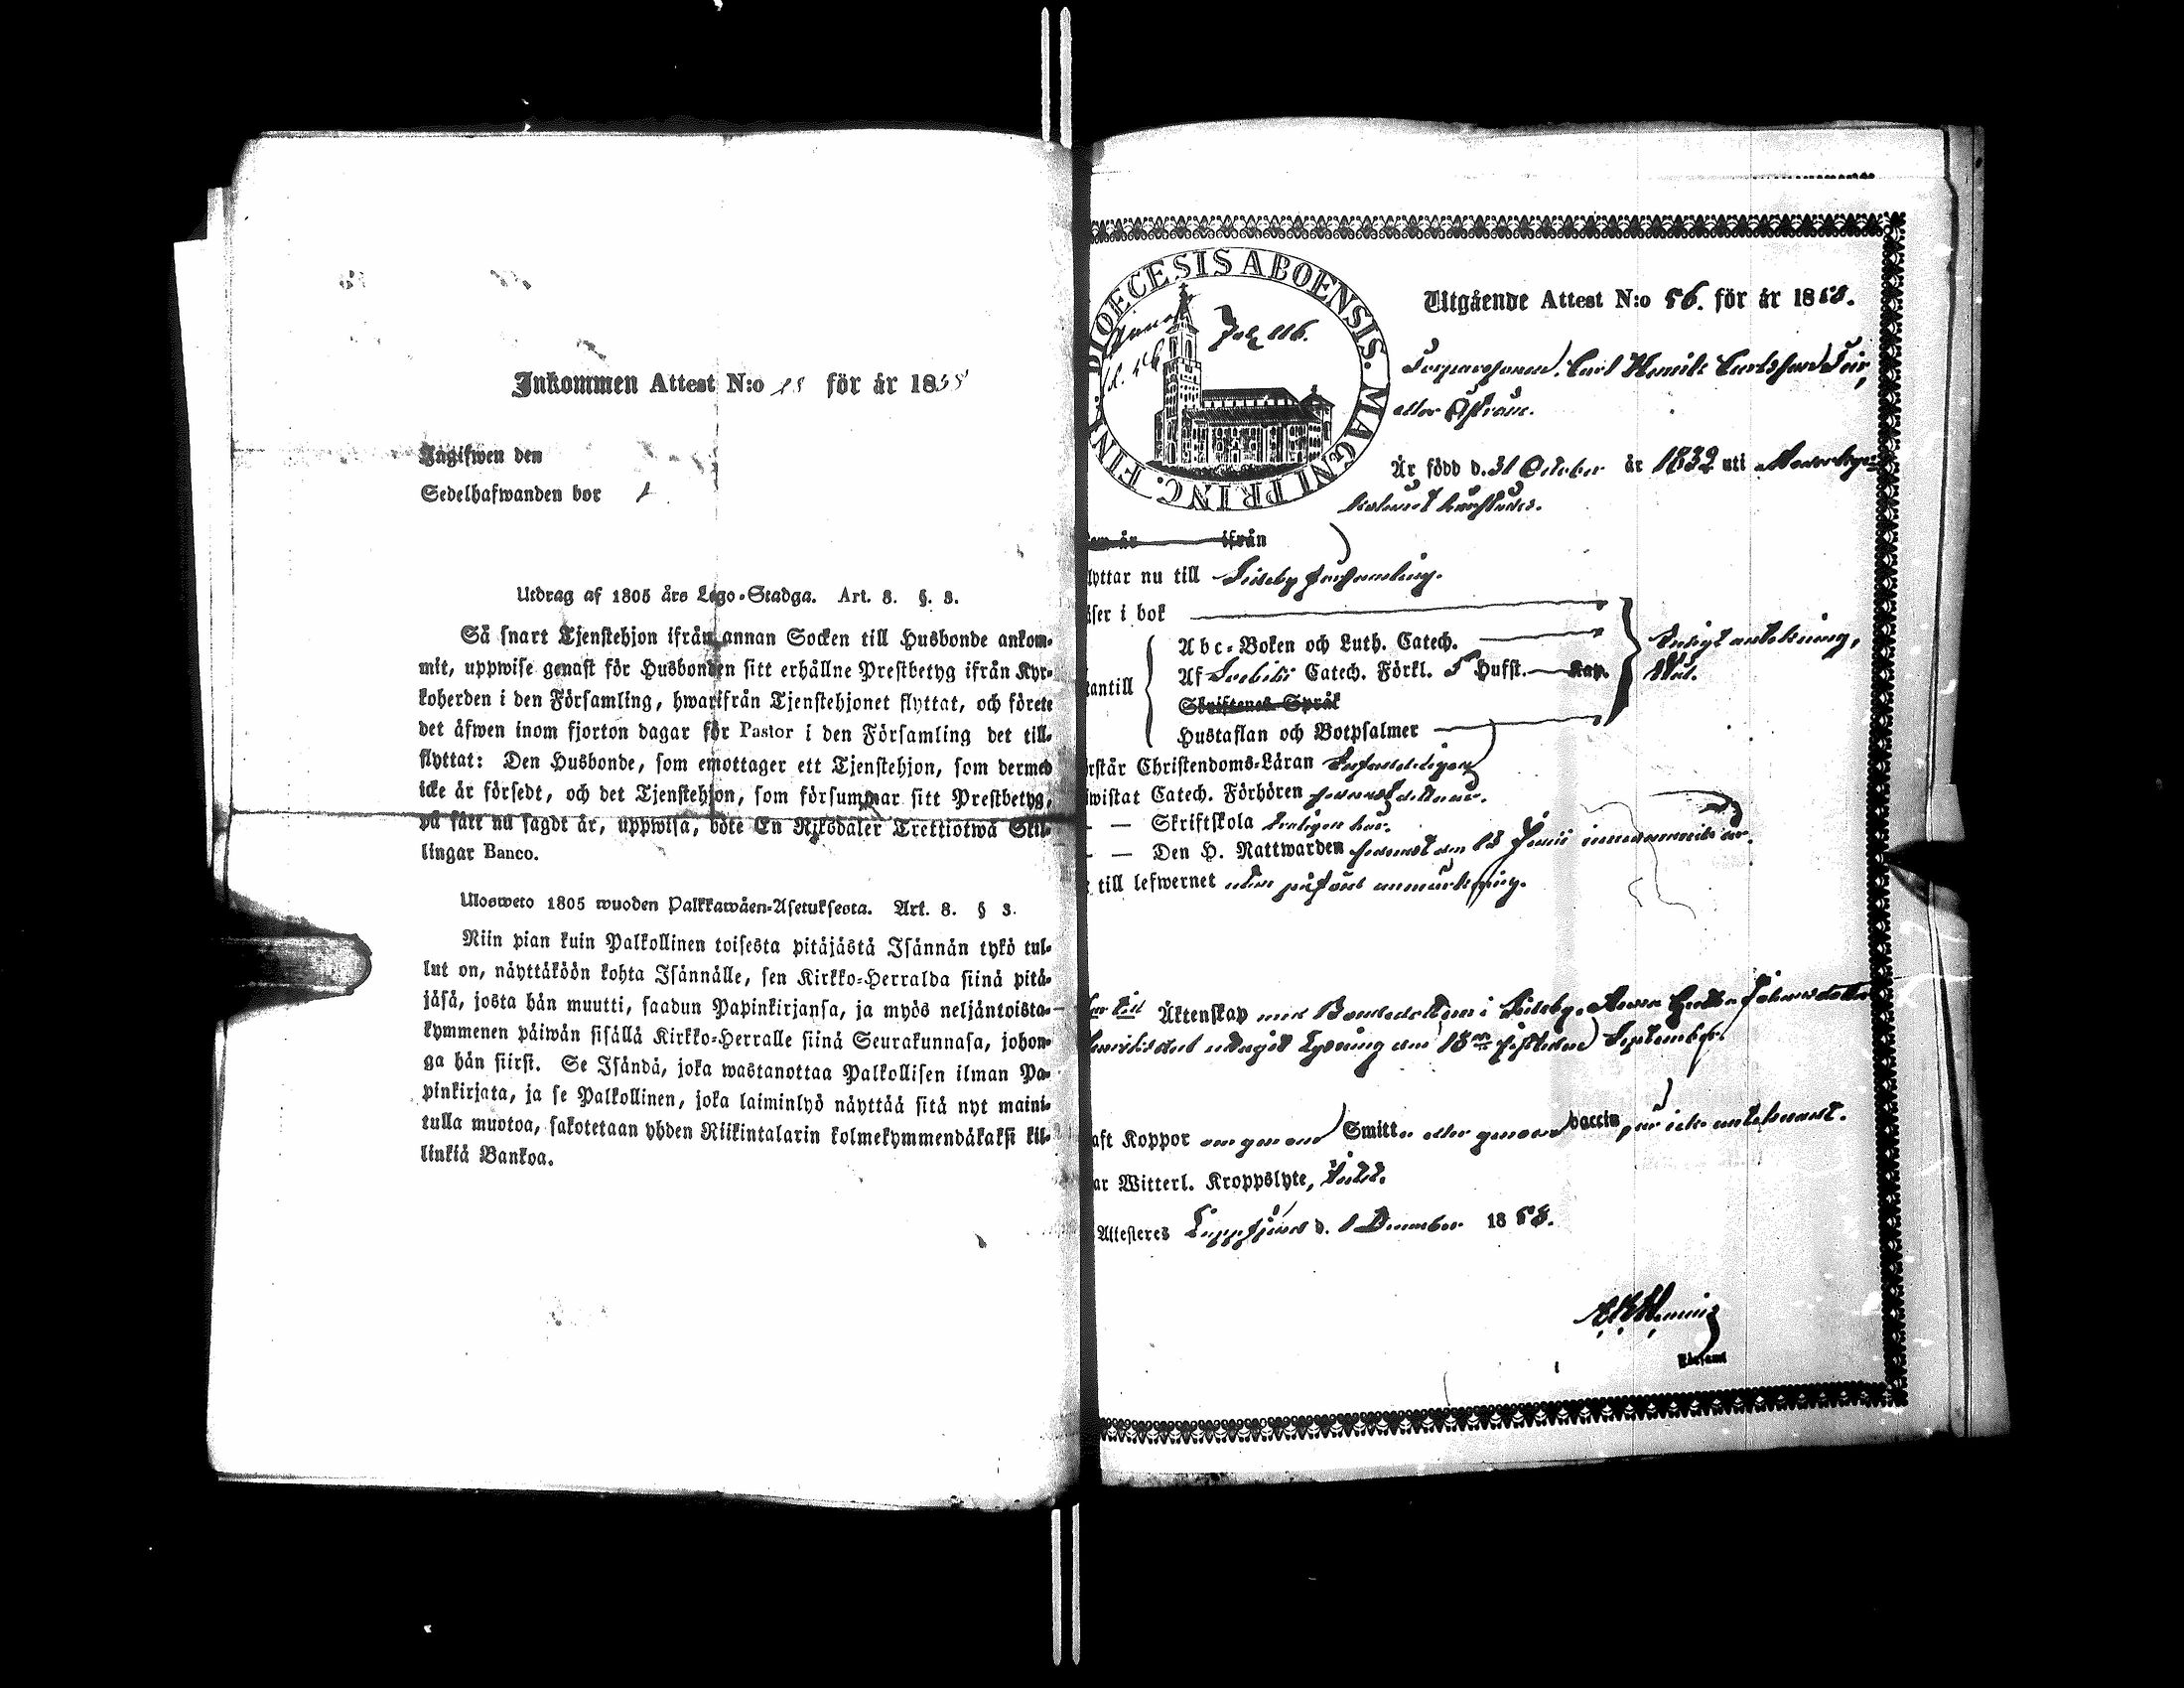 Inkommen Attest N:o för år 1858
Ingifwen den
Sedelhafwanden bor
Utdrag af 1805 års Lego-Stadga. Art. 8. §. 3.
Så snart Tjenstehjon ifrån annan Socken till Husbonde ankom-
mit, uppwise genast för Husbonden sitt erhållne Prestbetyg ifrån Kyr-
koherden i den Församling, hwarifrån Tjenstehjonet flyttat, och förete
det äfwen inom fjorton dagar för Pastor i den Församling det till-
flyttat: Den Husbonde, som emottager ett Tjenstehjon, som dermed
icke är försedt, och det Tjenstehjon, som försummar sitt Prestbetyg,
på sätt nu sagdt är, uppwisa, böte En Riksdaler Trettiotwå Skil-
lingar Banco.
Ulosweto 1805 wuoden Palkkawäen-Asetuksesta. Art. 8. § 3.
Niin pian kuin Palkollinen toisesta pitäjästä Isännän tykö tul-
lut on, näyttäköön kohta Isännälle, sen Kirkko-Herralda siinä pitä-
jäsä, josta hän muutti, saadun Papinkirjansa, ja myös neljäntoista-
kymmenen päiwän sisällä Kirkko-Herralle siinä Seurakunnasa, johon-
ga hän siirsi. Se Isändä, joka wastanottaa Palkollisen ilman Pa-
pinkirjata, ja se Palkollinen, joka laiminlyö näyttää sitä nyt maini-
tulla muotoa, sakotetaan yhden Riikintalarin kolmekymmendäkaksi kil-
linkiä Bankoa.
DIOECESIS ABOENSIS. MAGNI PRINC. FINL.
Fol. 116.
Utgående Attest N:o 56. för år 1858.
Carl Henrik Carlsson
eller
Är född d. 31 October år 1832 uti
em år ifrån
lyttar nu till Sideby församling.
äser i bok
Abc-Boken och Luth. Catech.
Af Svebilii Catech. Förkl. 5 Hufst. Kap.
tantill
Skriftenes Språk
Hustaflan och Botpsalmer
enligt anteckning,
Väl.
rstår Christendoms-Läran
wistat Catech. Förhören
— — Skriftskola
— — Den H. Nattwarden senast den 13 Junii innevarande år.
till lefwernet utan påföljd anmärkning.
till Äktenskap med Bondedottern i Sideby, Anna Greta Johansdotter
Lysning den September.
aft Koppor Smitt eller genom vaccin, är icke antecknadt.
ar Witterl. Kroppslyte,
Attesteres Lappfjärd d. 1 December 1858.